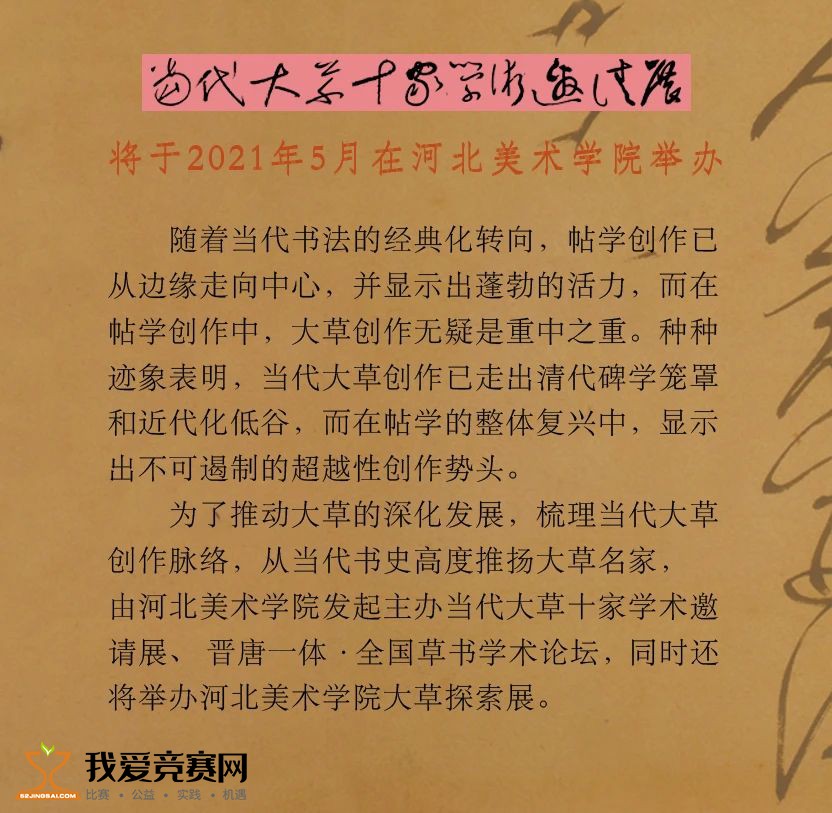 当代大草十家学术邀请展
将于2021年5月在河北美术学院举办
随着当代书法的经典化转向，帖学创作已
从边缘走向中心，并显示出蓬勃的活力，而在
帖学创作中，大草创作无疑是重中之重。种种
迹象表明，当代大草创作已走出清代碑学笼罩
和近代化低谷，而在帖学的整体复兴中，显示
出不可遏制的超越性创作势头。
为了推动大草的深化发展，梳理当代大草
创作脉络，从当代书史高度推扬大草名家，
由河北美术学院发起主办当代大草十家学术邀
请展、晋唐一体·全国草书学术论坛，同时还
将举办河北美术学院大草探索展。
我爱竞赛网
52JINGSAI.COM
比赛 • 公益 • 实践 • 机遇